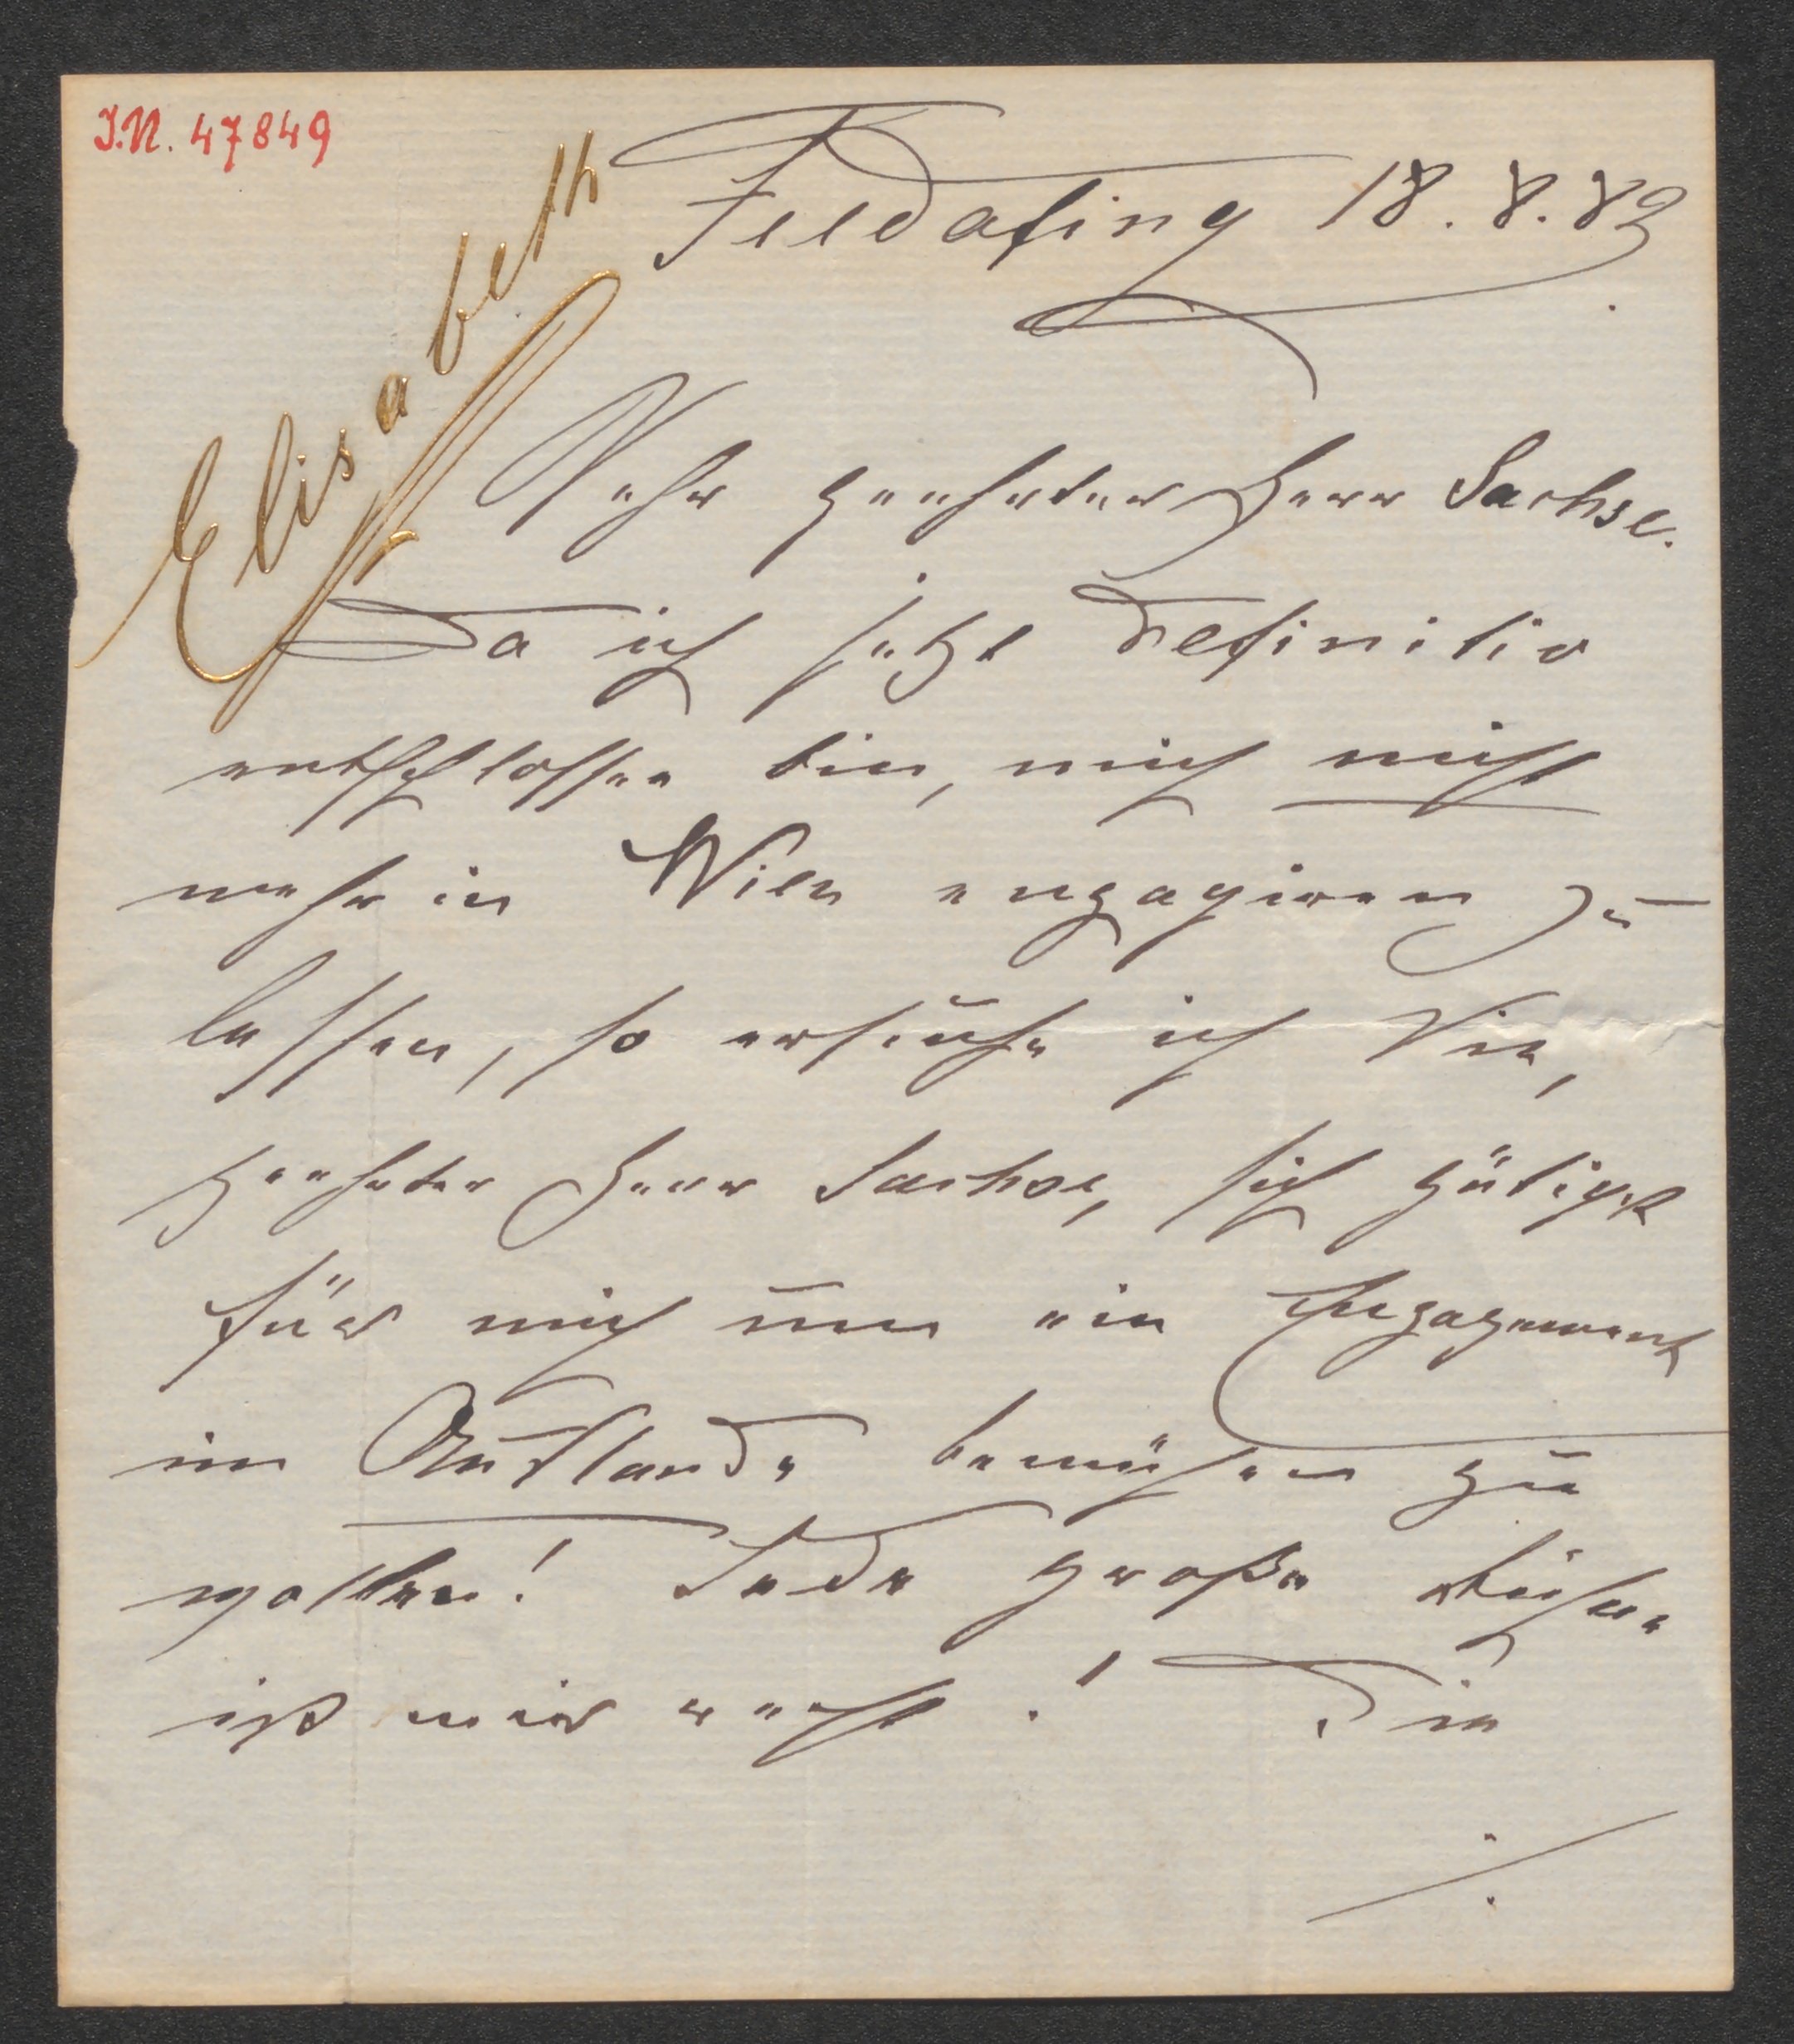 I.N. 47849
Elisabeth
Feldafing 18.8.83
Sehr geehrter Herr Sachse.
Da ich jetzt definitiv
entschlossen bin, mich nicht
mehr in Wien engagiren zu
lassen, so ersuche ich Sie,
geehrter Herr Sachse, sich gütigst
für mich um ein Engagement
im Auslande bemühen zu
wollen! Jede große Bühne
ist mir recht! Die
./.